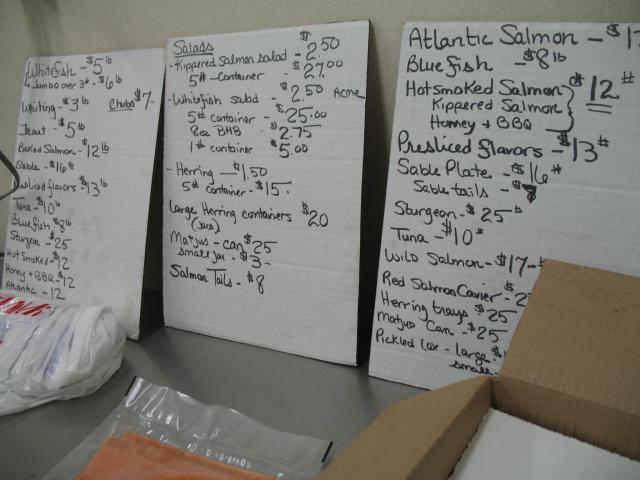 Whitefish - $5 lb
Jumbo over 3# - $6 lb
Whiting - $3 lb Chubs $7-
Trout - $5 lb
Baked Salmon - $12 lb
Sable - $16 #
Presliced flavors - $13 lb
Tuna - $10 lb
Bluefish - $8 lb
Sturgeon - $25
Hot Smoked - $12
Honey + BBQ - $12
Atlantic - 12
Salads
- Kippered Salmon salad - $2.50
5# - Container - $27.00
- Whitefish salad - $2.50 Acme
5# container - $25.00
8oz BHB - $2.75
1# container - $5.00
- Herring - $1.50
5# container - $15.
Large Herring containers $20
(jars)
Matjus - can $25
small jar - $3-
Salmon Tails - $8
Atlantic Salmon - $1
Bluefish - $8 lb
Hot Smoked Salmon
Kippered Salmon $12 #
Honey + BBQ
Presliced flavors - $13 #
Sable Plate - $16 #
Sable tails - $
Sturgeon - $25 lb
Tuna - $10 #
Wild Salmon - $17-#
Red Salmon Caviar - 2
Herring trays - $25
Matjus Can - $25
Pickled Lox - large - $
small -